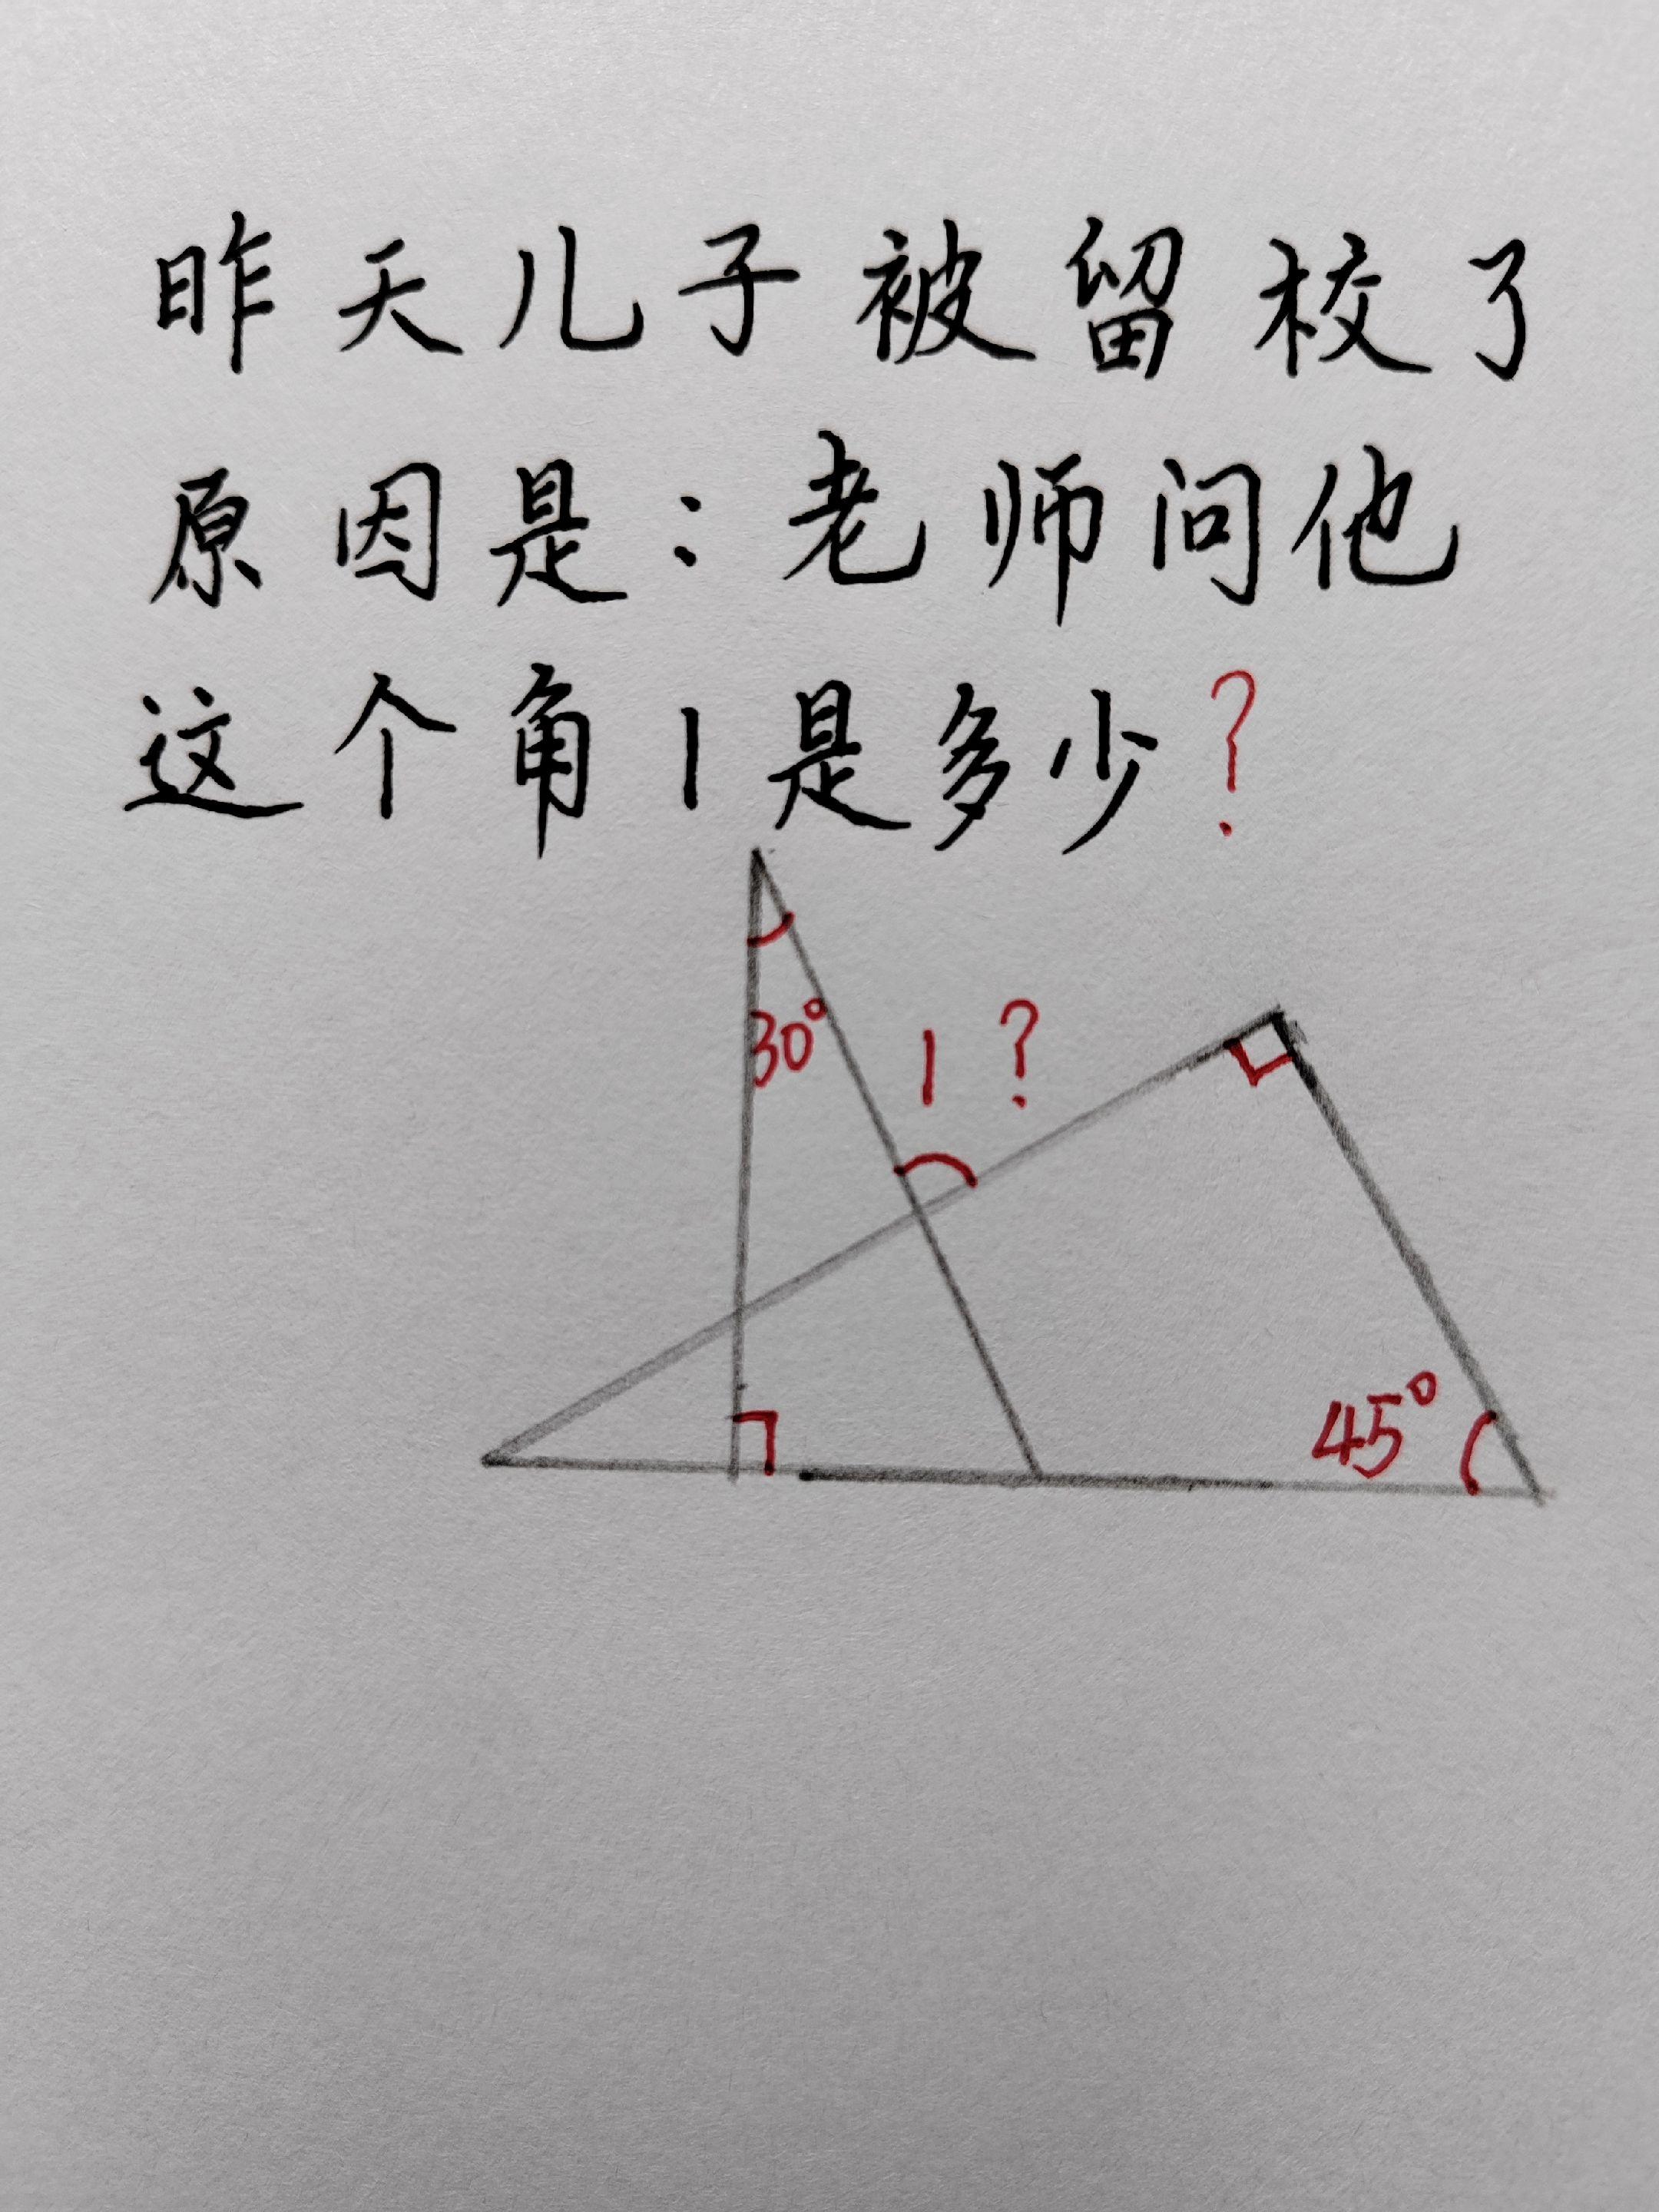 昨天儿子被留校了
原因是：老师问他
这个角1是多少？
30°
1？
45°